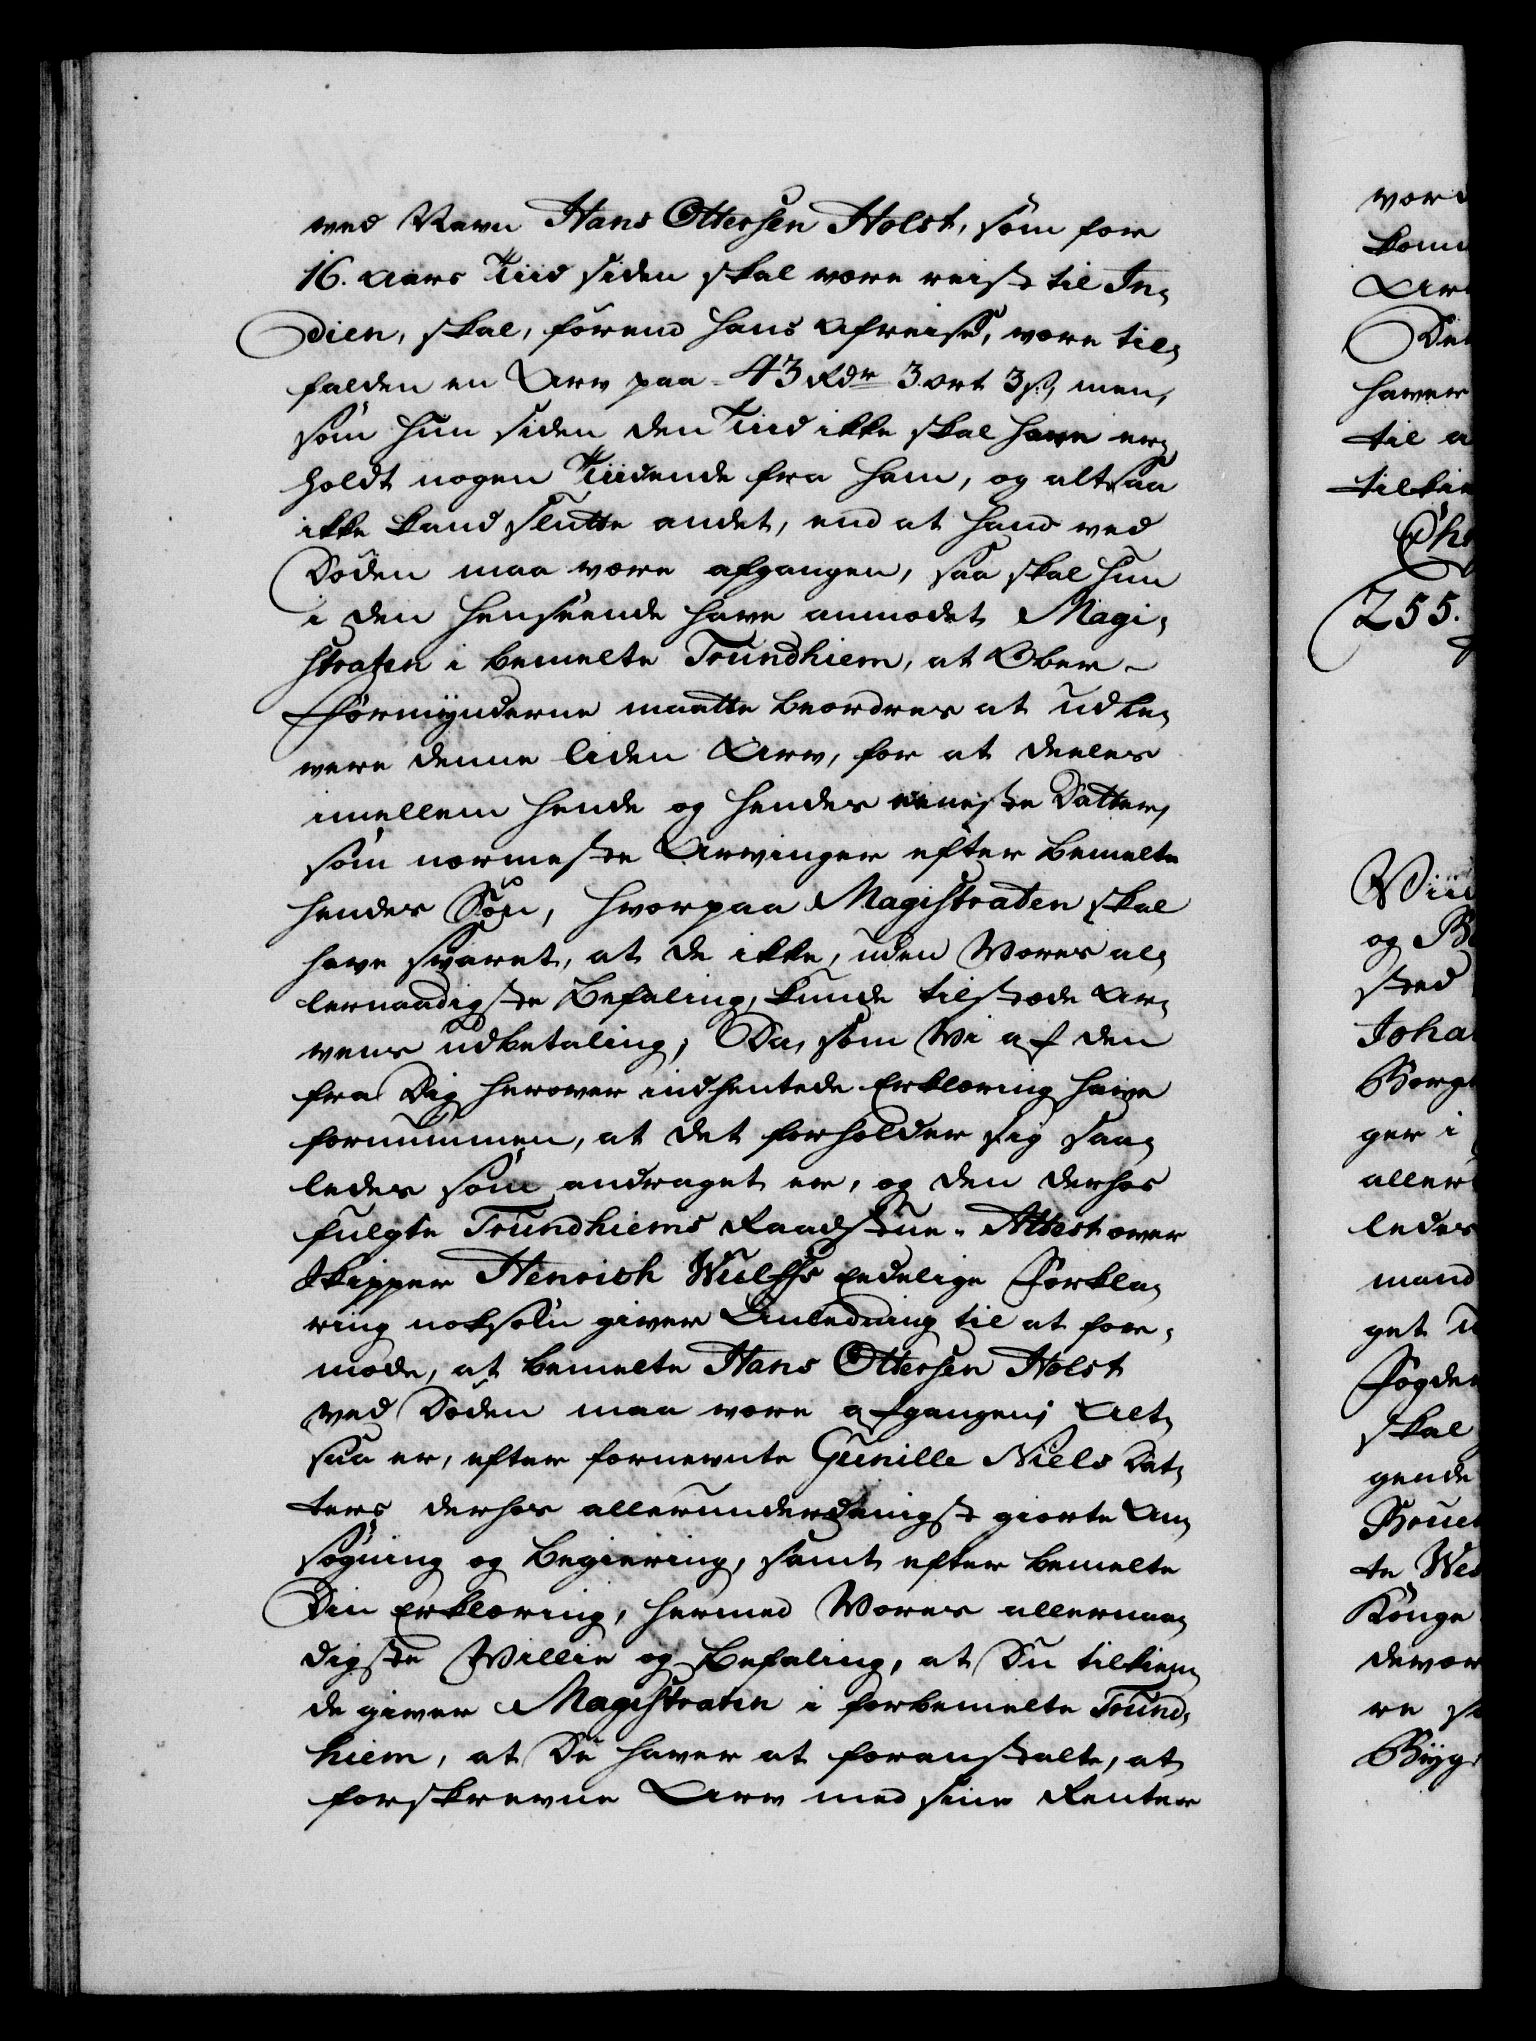 ved Navn Hans Ottersen Holst, som for
16. Aars Tiid siden skal være reist til In-
dien, skal, førend hans Afreise, være til-
falden en Arv paa 43 Rdr 3 ort 3 ß, men,
som hun siden den Tiid ikke skal have er-
holdt nogen Tiidende fra ham, og altsaa
ikke kand slutte andet, end at hand ved
Døden maa være afgangen, saa skal hun
i den Henseende have anmodet Magi-
straten i bemelte Trundhiem, at Ober-
Formynderne maatte beordres at udle-
vere denne liden Arv, for at deeles
imellem hende og hendes eeneste Datter,
som nærmeste Arvinger efter bemelte
hendes Søn, hvorpaa Magistraten skal
have svaret, at de ikke, uden Vores al-
lernaadigste Befaling, kunde tilstæde Ar-
vens udbetaling; Da, som Vi af den
fra Dig herover indhentede Erklæring have
fornummen, at det forholder sig saa-
ledes som andraget er, og den derhos
fulgte Trundhiems Raadstue-Attest over
Skipper Henrich Wulffs Eedelige Forkla-
ring noksom giver Anledning til at for-
mode, at bemelte Hans Ottersen Holst
ved Døden maa være afgangen; Alt-
saa er, efter fornevnte Gunille Niels Dat-
ters derhos allerunderdanigst giorte An-
søgning og Begiering, samt efter bemelte
Din Erklæring, hermed Vores allernaa-
digste Villie og Befaling, at Du tilkien-
de giver Magistraten i forbemelte Trund-
hiem, at De haver at foranstalte, at
forskrevne Arv med sine Renter
vord
kom
Ar
Det
haver
til a
tilkie
Chr
255.
Viid
og B
sted
Joha
Borge
ger i
aller
ledes
mand
get u
Fogde
skal
gende
Bru
te Wes
Konge
de vær
re s
Byg